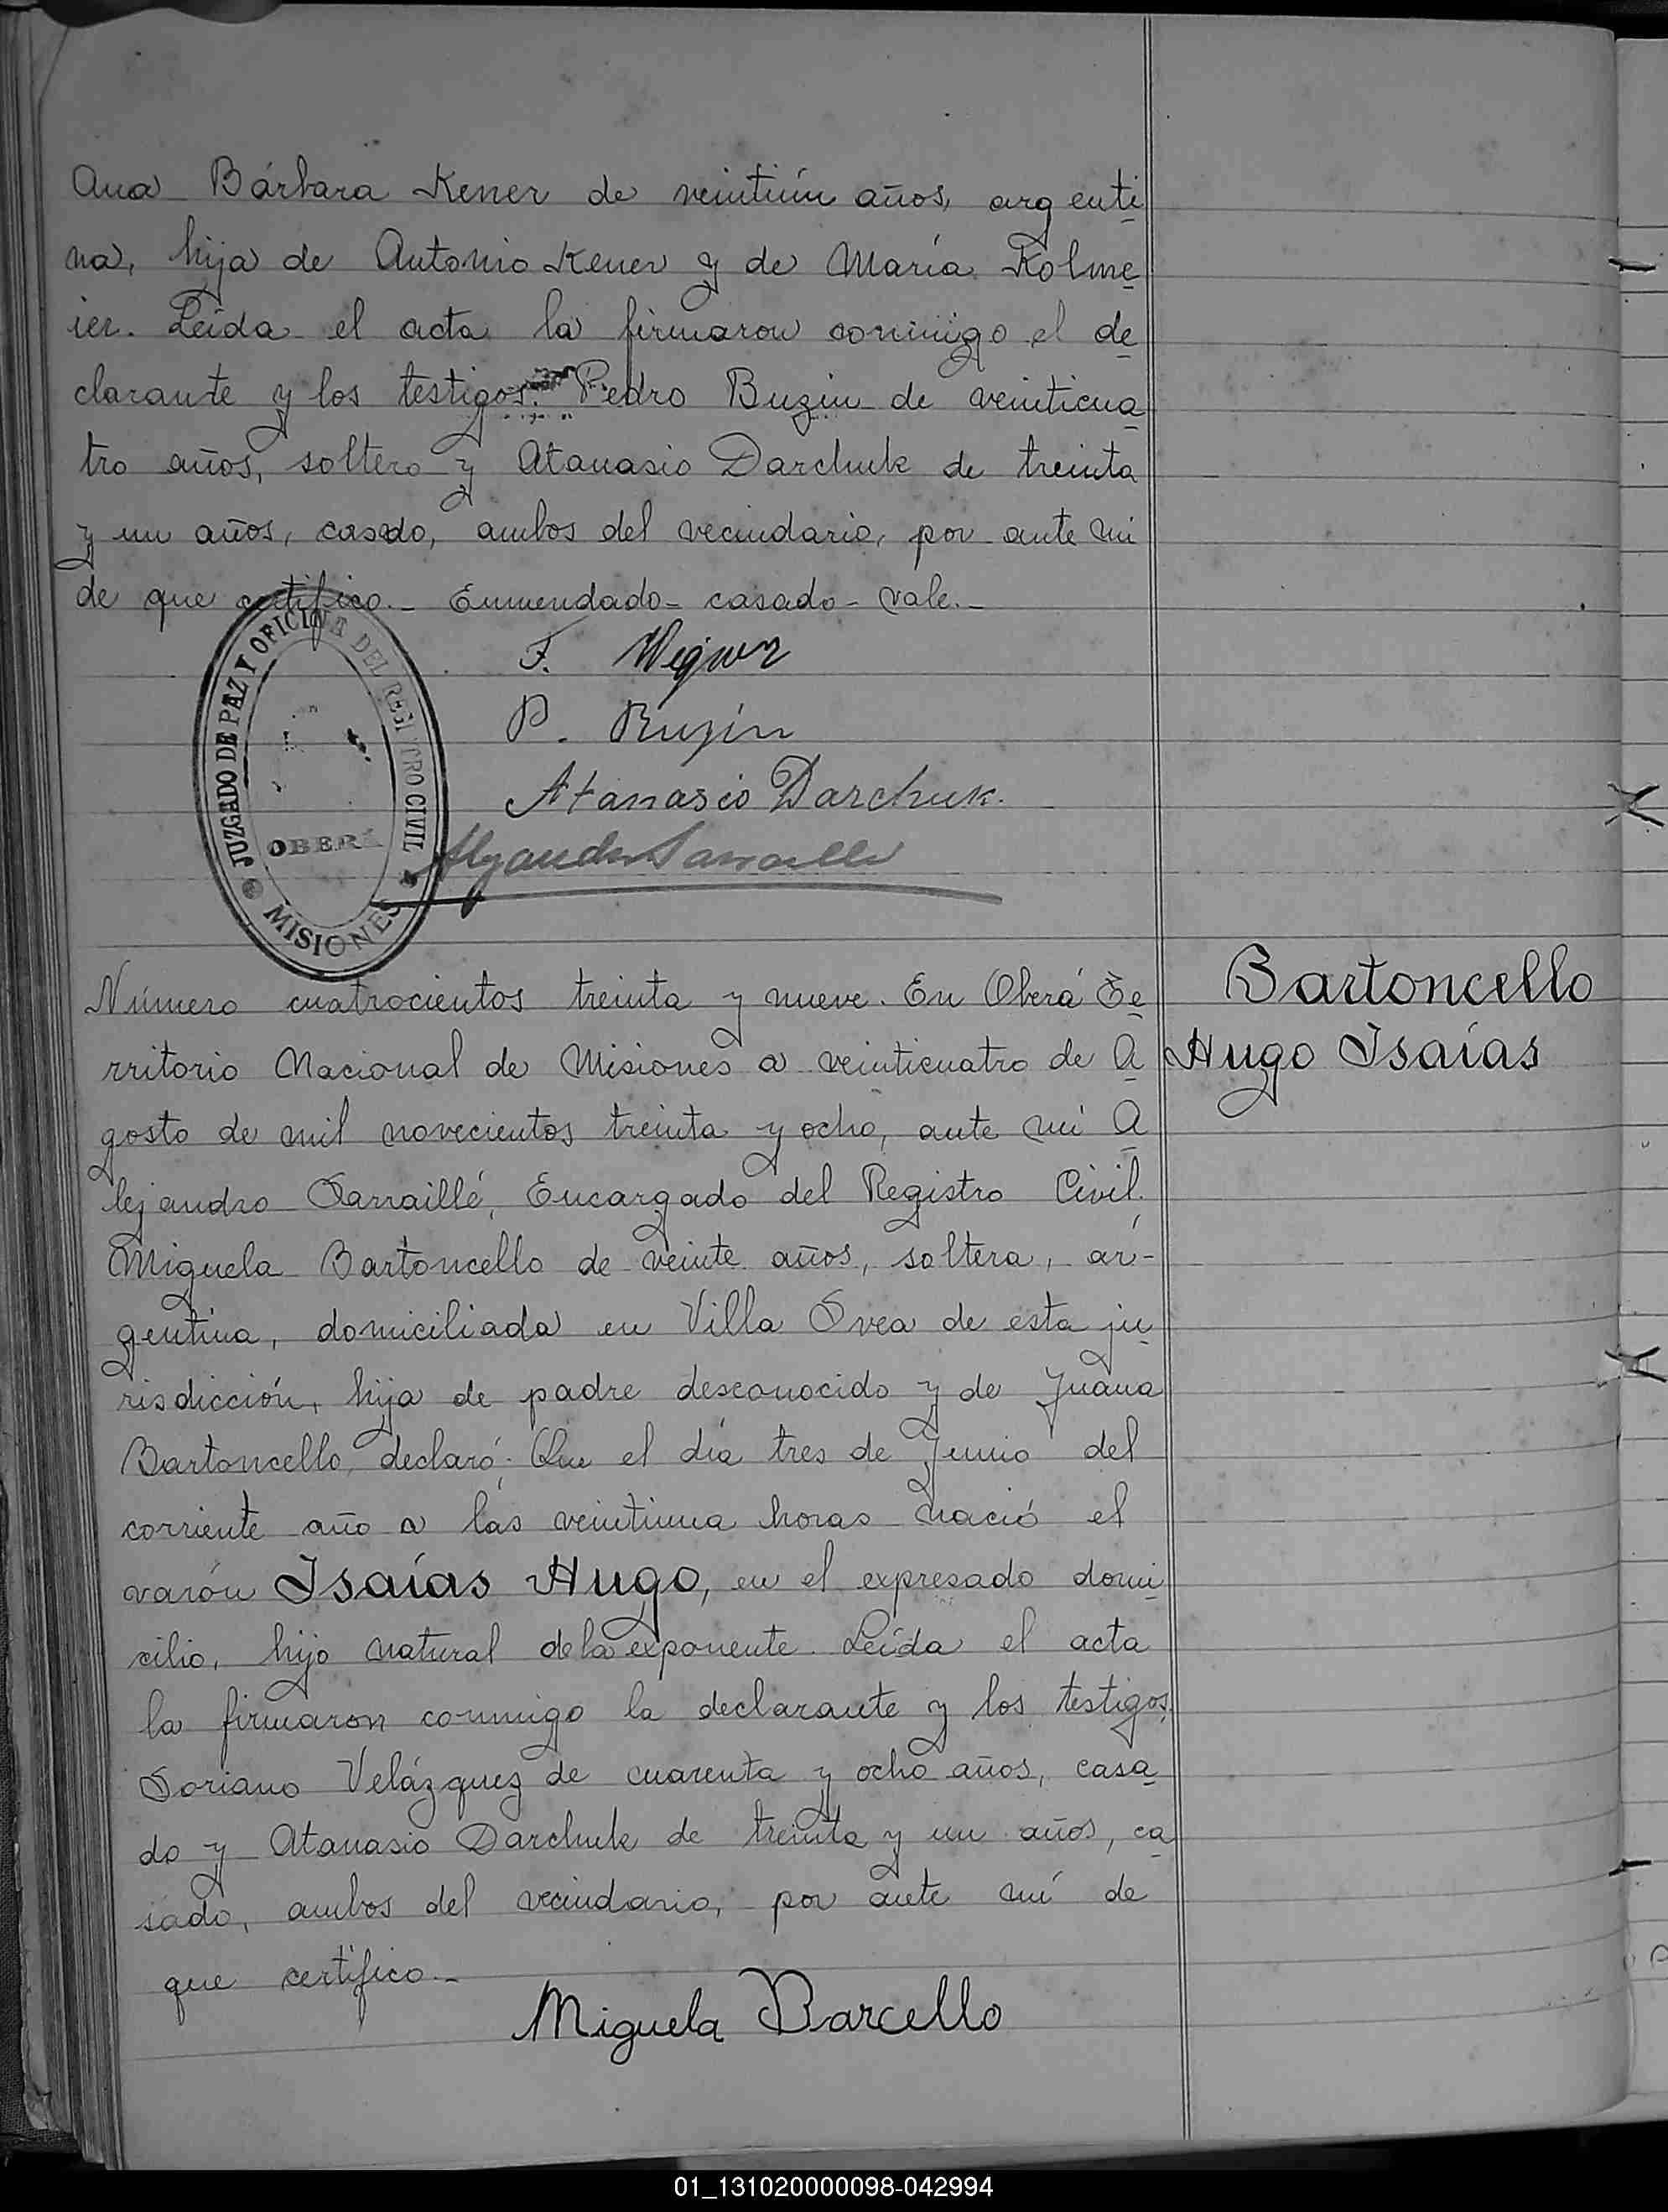 Ana Bárbara Kener de veintiún años, argenti
na, hija de Antonio Kener y de María Kolme
ier. Leída el acta la firmaron conmigo el de
clarante y los testigos: Pedro Buzin de veinticua
tro años, soltero y Atanasio Darchuk de treinta
y un años, casado, ambos del vecindario, por ante mí
de que certifico.- Enmendado- casado- vale.-
F.
P. Buzin
Atanasio Darchuk.
Alejandro Sarraillé
JUZGADO DE PAZ Y OFICINA DEL REGISTRO CIVIL
OBERÁ
MISIONES
Bartoncello
Hugo Isaías
Número cuatrocientos treinta y nueve. En Oberá Te
rritorio Nacional de Misiones a veinticuatro de A
gosto de mil novecientos treinta y ocho, ante mí A
lejandro Sarraillé, Encargado del Registro Civil.
Miguela Bartoncello de veinte años, soltera, ar-
gentina, domiciliada en Villa Svea de esta ju
risdicción, hija de padre desconocido y de Juana
Bartoncello, declaró: Que el día tres de Junio del
corriente año a las veintiuna horas nació el
varón Isaías Hugo, en el expresado domi
cilio, hijo natural de la exponente. Leída el acta
la firmaron conmigo la declarante y los testigos
Soriano Velázquez de cuarenta y ocho años, casa
do y Atanasio Darchuk de treinta y un años, ca
sado, ambos del vecindario, por ante mí de
que certifico.-
Miguela Barcello
01_131020000098-042994